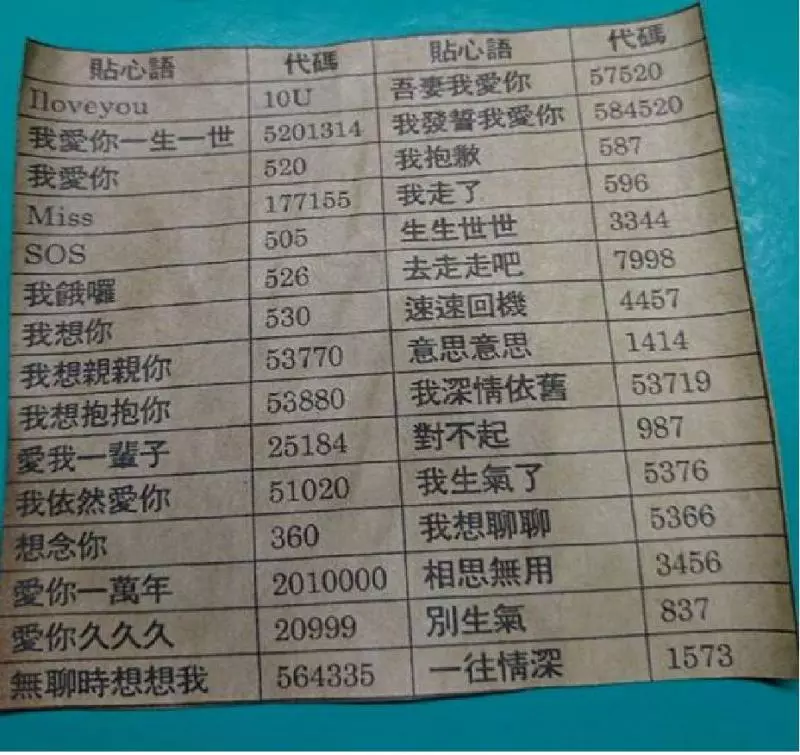 貼心語 代碼 貼心語 代碼
Iloveyou 10U 吾妻我愛你 57520
我愛你一生一世 5201314 我發誓我愛你 584520
我愛你 520 我抱歉 587
Miss 177155 我走了 596
SOS 505 生生世世 3344
我餓囉 526 去走走吧 7998
我想你 530 速速回機 4457
我想親親你 53770 意思意思 1414
我想抱抱你 53880 我深情依舊 53719
愛我一輩子 25184 對不起 987
我依然愛你 51020 我生氣了 5376
想念你 360 我想聊聊 5366
愛你一萬年 2010000 相思無用 3456
愛你久久久 20999 別生氣 837
無聊時想想我 564335 一往情深 1573